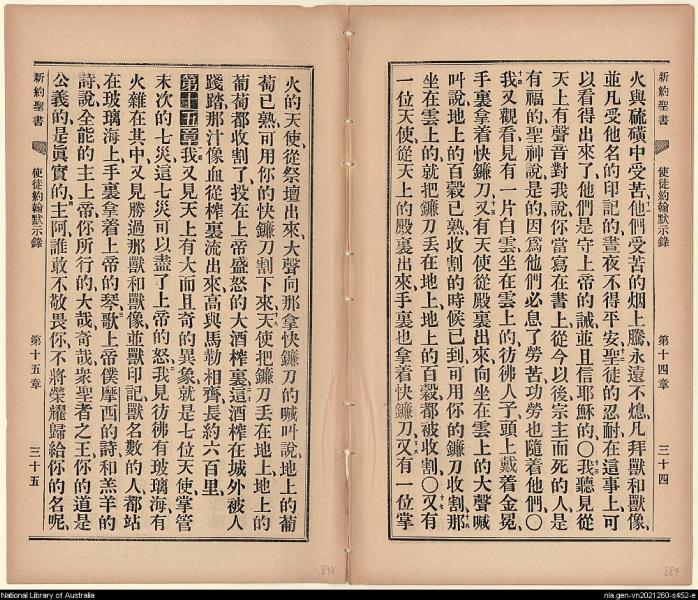 新約聖書
使徒約翰默示錄
第十四章
三十四
火與硫磺中受苦、他們受苦的烟上騰、永遠不熄、凡拜獸和獸像、
並凡受他名的印記的、晝夜不得平安、聖徒的忍耐在這事上可
以看得出來了、他們是守上帝的誡、並且信耶穌的、〇我聽見從
天上有聲音對我說、你當寫在書上、從今以後宗主而死的人、是
有福的、聖神說是的、因爲他們必息了勞苦、功勞也隨着他們、〇
我又觀看、見有一片白雲、坐在雲上的、彷彿人子、頭上戴着金冕、
手裏拿着快鐮刀、又有天使從殿裏出來、向坐在雲上的大聲喊
叫說、地上的百穀已熟、收割的時候已到、可用你的鐮刀收割、那
坐在雲上的、就把鐮刀丟在地上、地上的百穀都被收割、〇又有
一位天使、從天上的殿裏出來、手裏也拿着快鐮刀、又有一位掌
火的天使、從祭壇出來、大聲向那拿快鐮刀的喊叫說、地上的葡
萄已熟、可用你的快鐮刀割下來、天使把鐮刀丟在地上、地上的
葡萄都收割了、投在上帝盛怒的大酒榨裏、這酒榨在城外被人
踐踏、那汁像血從榨裏流出來、高與馬勒相齊、長約六百里、
第十五章我又見天上有大而且奇的異象、就是七位天使、掌管
末次的七災、這七災可以盡了上帝的怒、我見彷彿有玻璃海、有
火雜在其中、又見勝過那獸和獸像、並獸印記、獸名數的人、都站
在玻璃海上、手裏拿着上帝的琴、歌上帝僕摩西的詩、和羔羊的
詩、說、全能的主上帝、你所行的大哉、奇哉、衆聖者之王、你的道是
公義的、是眞實的、主阿、誰敢不敬畏你、不將榮耀歸給你的名呢、
新約聖書
使徒約翰默示錄
第十五章
三十五
890
889
National Library of Australia
nla.gen-vn2021260-s452-e